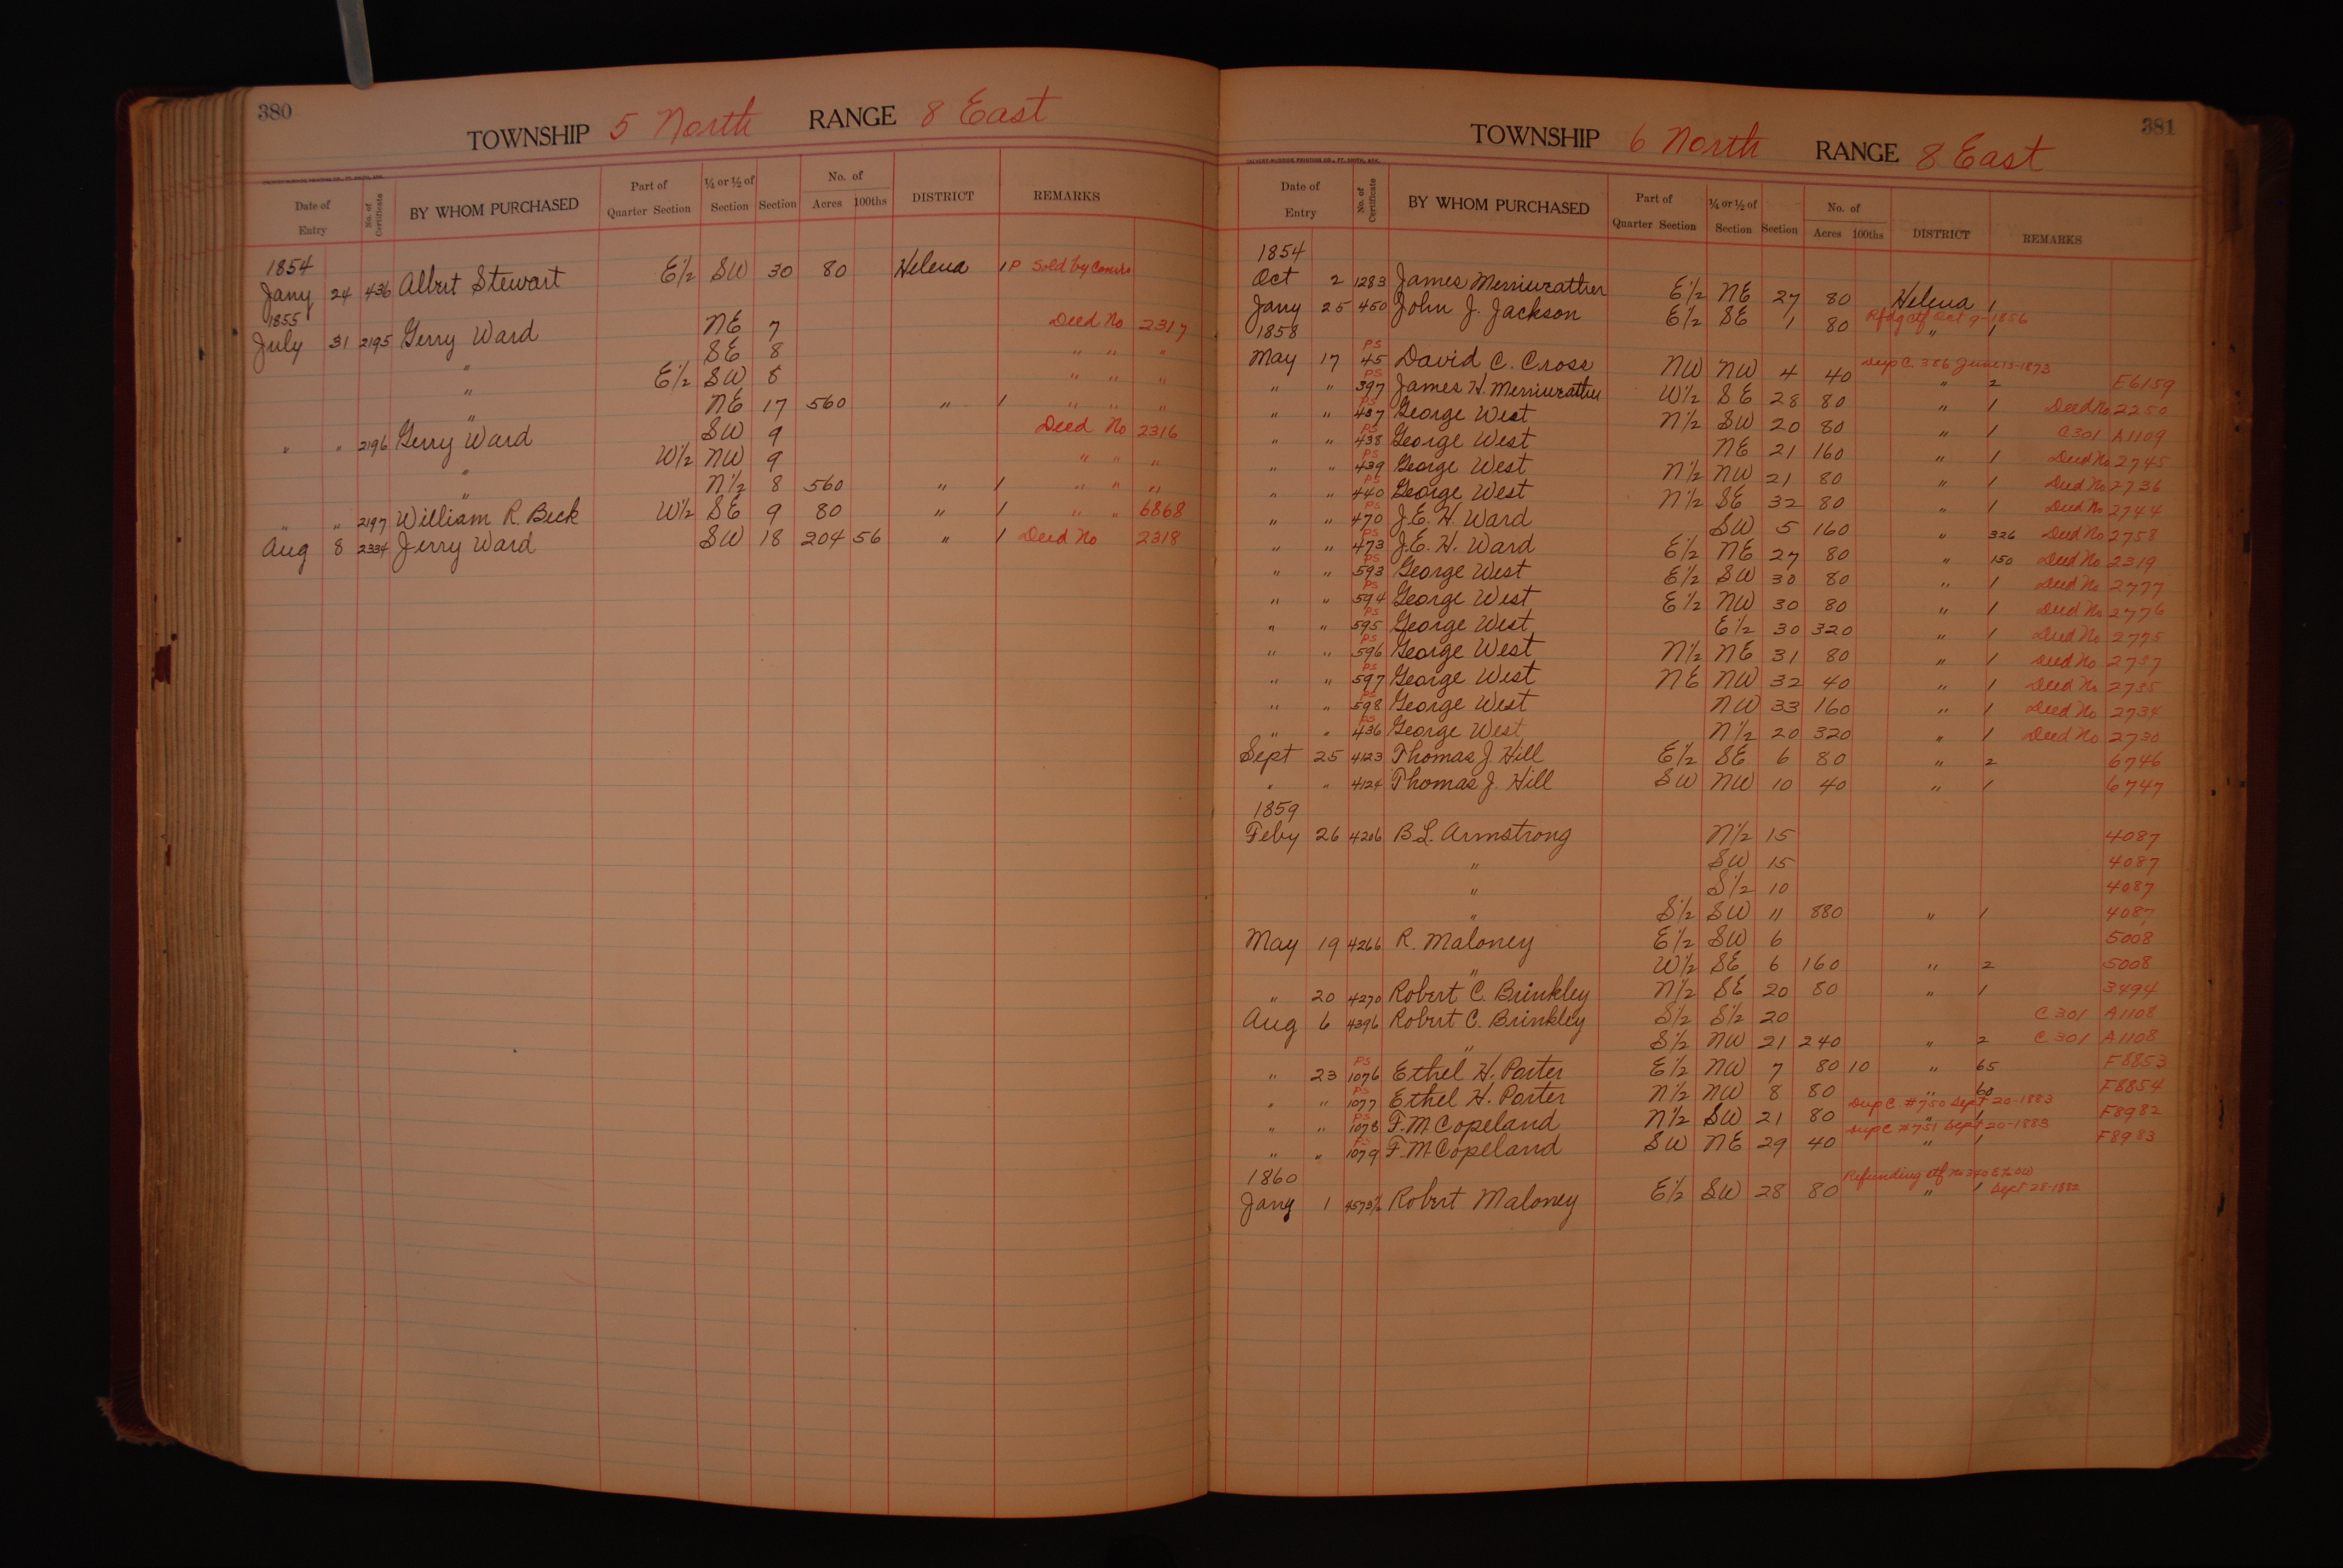 380
TOWNSHIP 5 North RANGE 8 East
Date of Entry No. of Certificate BY WHOM PURCHASED Part of Quarter Section ¼ or ½ of Section Section No. of Acres 100ths DISTRICT REMARKS
1854
Jany 24 436 Albert Stewart E½ SW 30 80 Helena 1 P Sold by
1855
July 31 2195 Gerry Ward NE 7 Deed No 2317
" SE 8 " " "
" E½ SW 8 " " "
" NE 17 560 " 1 " " "
" " 2196 Gerry Ward SW 9 Deed No 2316
" W½ NW 9 " " "
" N½ 8 560 " 1 " " "
" " 2197 William R. Beck W½ SE 9 80 " 1 " " 6868
Aug 8 2334 Jerry Ward SW 18 204 56 " 1 Deed No 2318
381
TOWNSHIP 6 North RANGE 8 East
Date of Entry No. of Certificate BY WHOM PURCHASED Part of Quarter Section ¼ or ½ of Section Section No. of Acres 100ths DISTRICT REMARKS
1854
Oct 2 1283 James Merriweather E½ NE 27 80 Helena 1
Jany 25 450 John J. Jackson E½ SE 1 80 Oct 9-1856 " 1
1858
May 17 PS 45 David C. Cross NW NW 4 40 Dup C. 386 June 13-1873 " 2 E6159
" " PS 397 James H. Merriweather W½ SE 28 80 " 1 Deed No 2250
" " PS 437 George West N½ SW 20 80 " 1 C301 A1109
" " PS 438 George West NE 21 160 " 1 Deed No 2745
" " PS 439 George West N½ NW 21 80 " 1 Deed No 2736
" " PS 440 George West N½ SE 32 80 " 1 Deed No 2744
" " PS 470 J.E.H. Ward SW 5 160 " 326 Deed No 2758
" " PS 473 J.E.H. Ward E½ NE 27 80 " 150 Deed No 2319
" " PS 593 George West E½ SW 30 80 " 1 Deed No 2777
" " PS 594 George West E½ NW 30 80 " 1 Deed No 2776
" " PS 595 George West E½ 30 320 " 1 Deed No 2775
" " PS 596 George West N½ NE 31 80 " 1 Deed No 2737
" " PS 597 George West NE NW 32 40 " 1 Deed No 2735
" " PS 598 George West NW 33 160 " 1 Deed No 2734
" " PS 436 George West N½ 20 320 " 1 Deed No 2730
Sept 25 4123 Thomas J. Hill E½ SE 6 80 " 2 6746
" " 4124 Thomas J. Hill SW NW 10 40 " 1 6747
1859
Feby 26 4206 B.L. Armstrong N½ 15 4087
" SW 15 4087
" S½ 10 4087
" S½ SW 11 880 " 1 4087
May 19 4266 R. Maloney E½ SW 6 5008
" W½ SE 6 160 " 2 5008
" 20 4270 Robert C. Brinkley N½ SE 20 80 " 1 3494
Aug 6 4396 Robert C. Brinkley S½ S½ 20 C301 A1108
" S½ NW 21 240 " 2 C301 A1108
" 23 PS 1076 Ethel H. Porter E½ NW 7 80 10 " 65 F8853
" " PS 1077 Ethel H. Porter N½ NW 8 80 " 60 F8854
" " PS 1078 F.M. Copeland N½ SW 21 80 Dup C #750 Sept 20-1883 " 1 F8982
" " PS 1079 F.M. Copeland SW NE 29 40 Dup C #751 Sept 20-1883 " 1 F8983
1860
Jany 1 4573½ Robert Maloney E½ SW 28 80 Refunding " 1 Sept 28-1882